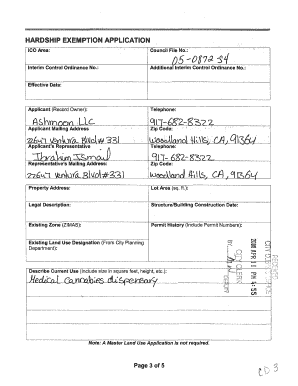 HARDSHIP EXEMPTION APPLICATION
ICO Area:
Council File No.:
05-0872 S4
Interim Control Ordinance No.:
Additional Interim Control Ordinance No.:
Effective Date:
Applicant (Record Owner):
Telephone:
Ashmoon LLC
917-682-8322
Applicant Mailing Address
Zip Code:
22647 ventura Blvd# 331
woodland Hills, CA, 91364
Applicant's Representative
Telephone:
Ibrahim Ismail
917-682-8322
Representative's Mailing Address:
Zip Code:
22647 ventura Blvd#331
woodland Hills, CA, 91364
Property Address:
Lot Area (sq. ft.):
Legal Description:
Structure/Building Construction Date:
Existing Zone (ZIMAS):
Permit History (Include Permit Numbers):
Existing Land Use Designation (From City Planning
Department):
Describe Current Use (Include size in square feet, height, etc.)
Medical cannabies dispensary
CITY CLERK
BY
DEPUTY
Note: A Master Land Use Application is not required.
Page 3 of 5